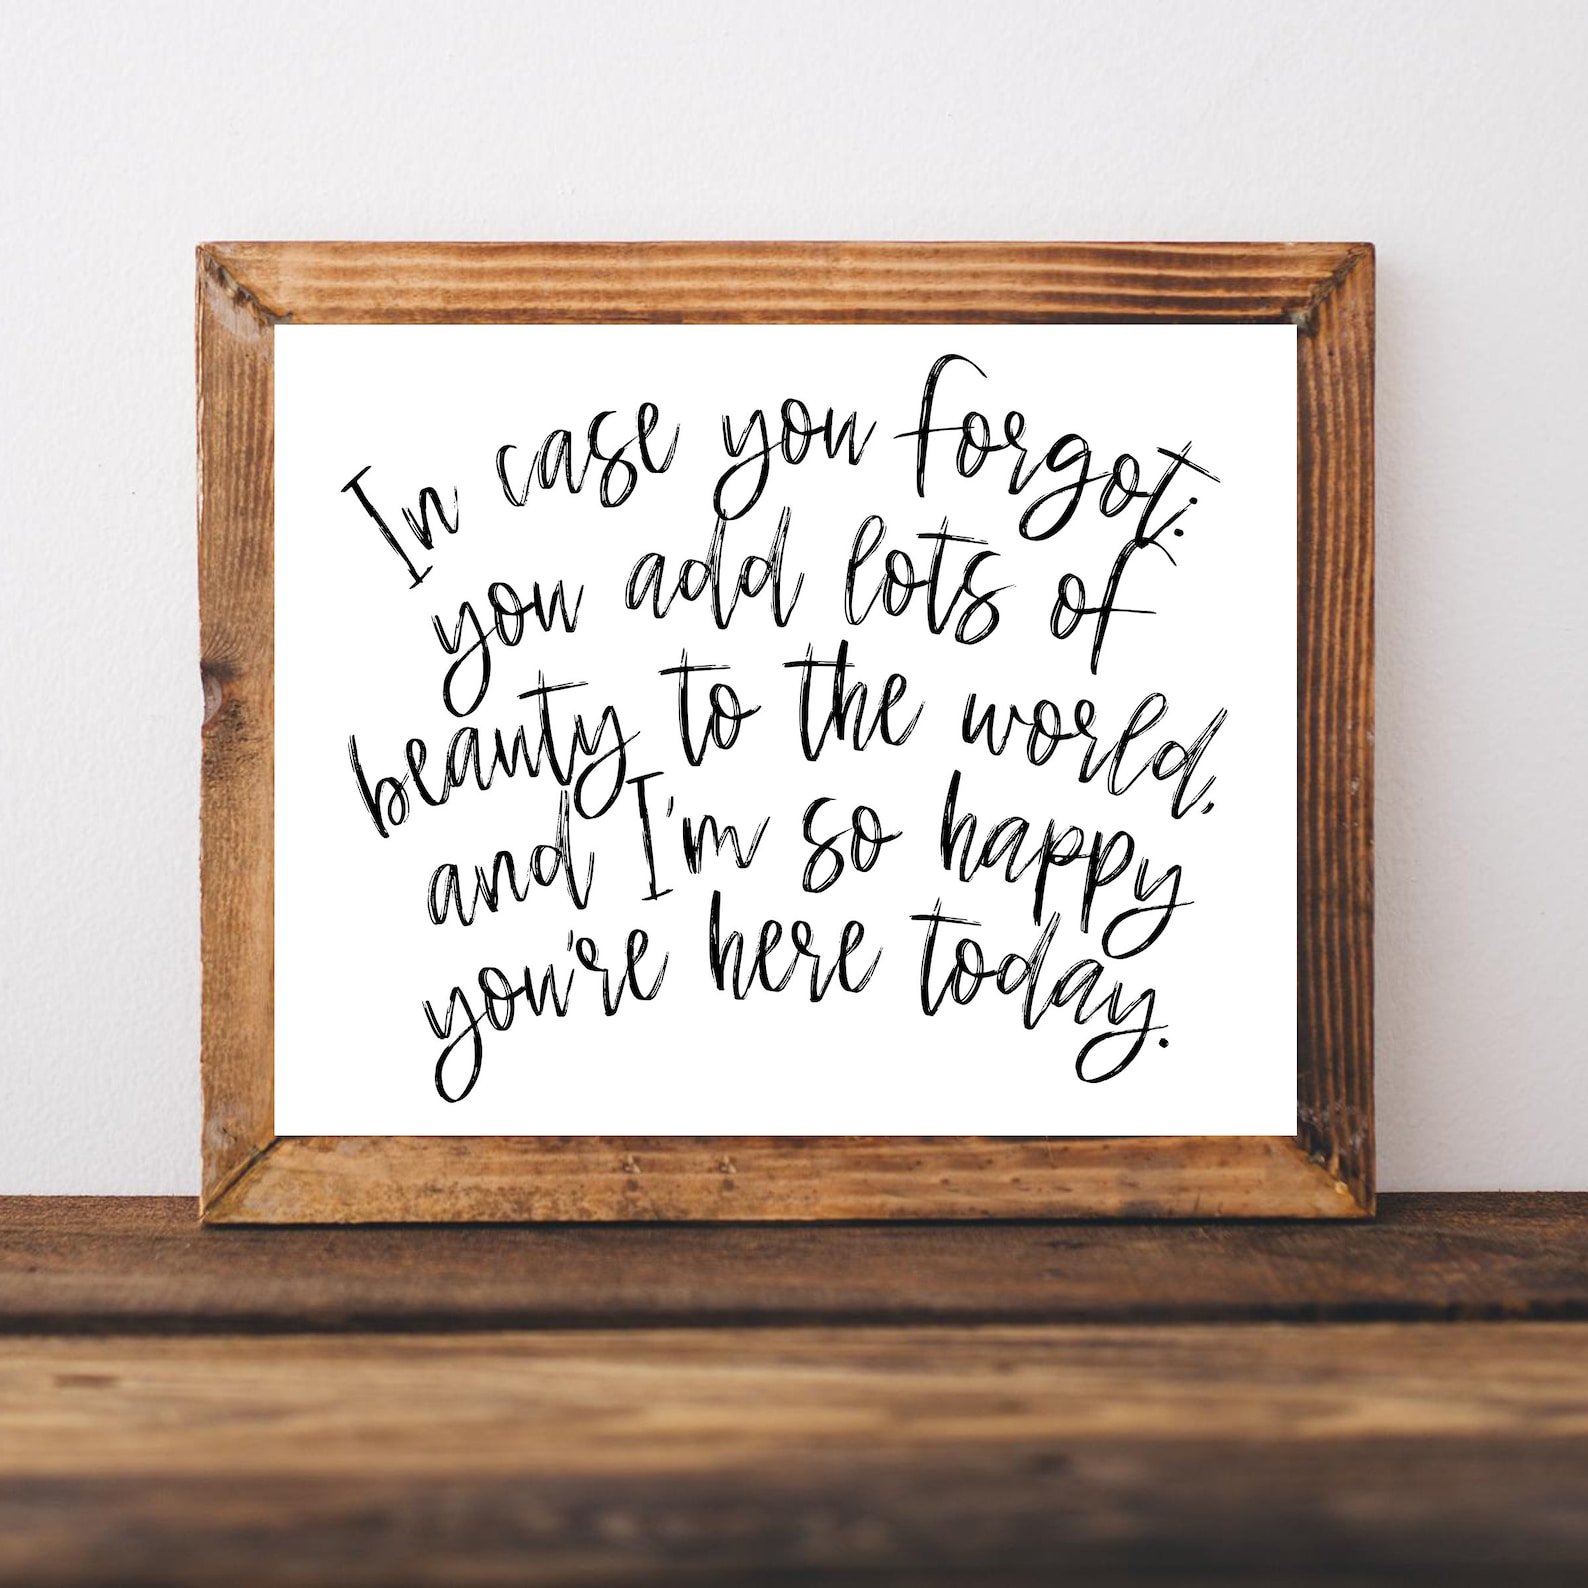 In case you forgot:
you add lots of
beauty to the world,
and I'm so happy
you're here today.